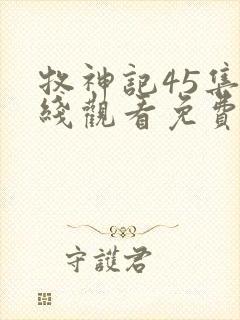 牧神記45集
綫觀看免費
守護君